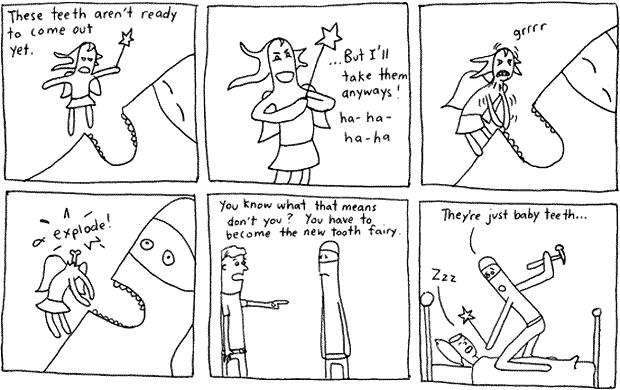 These teeth aren't ready
to come out
yet.
...But I'll
take them
anyways!
ha-ha-
ha-ha
grrrr
explode!
You know what that means
don't you? You have to
become the new tooth fairy.
They're just baby teeth...
Zzz